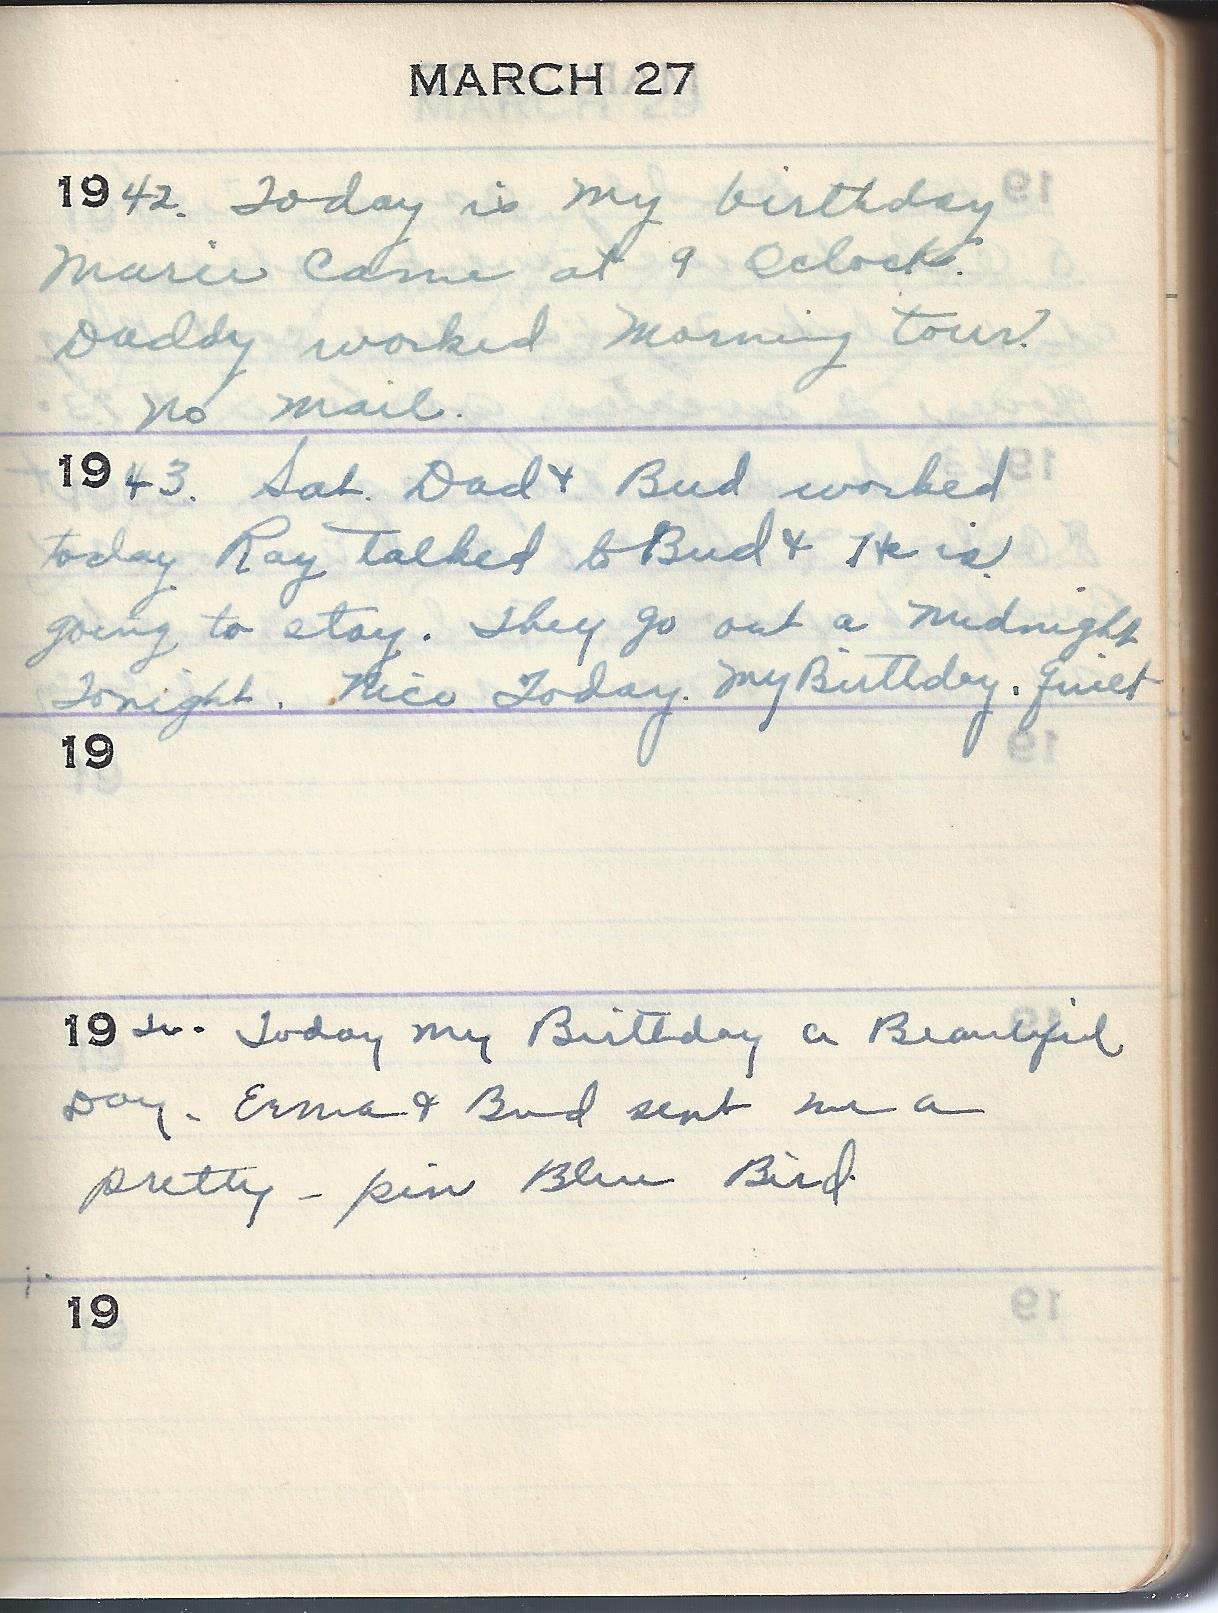 MARCH 27
1942. Today is my birthday
Marie Came at 9 Oclock.
Daddy worked Morning tour.
No Mail.
1943. Sat. Dad & Bud worked
today Ray talked to Bud & He is
going to stay. They go out a Midnight
Tonight. Nice Today. My Birthday. Quiet
19
19 Today my Birthday a Beautiful
Day. Erma & Bud sent me a
pretty - pin Blue Bird.
19